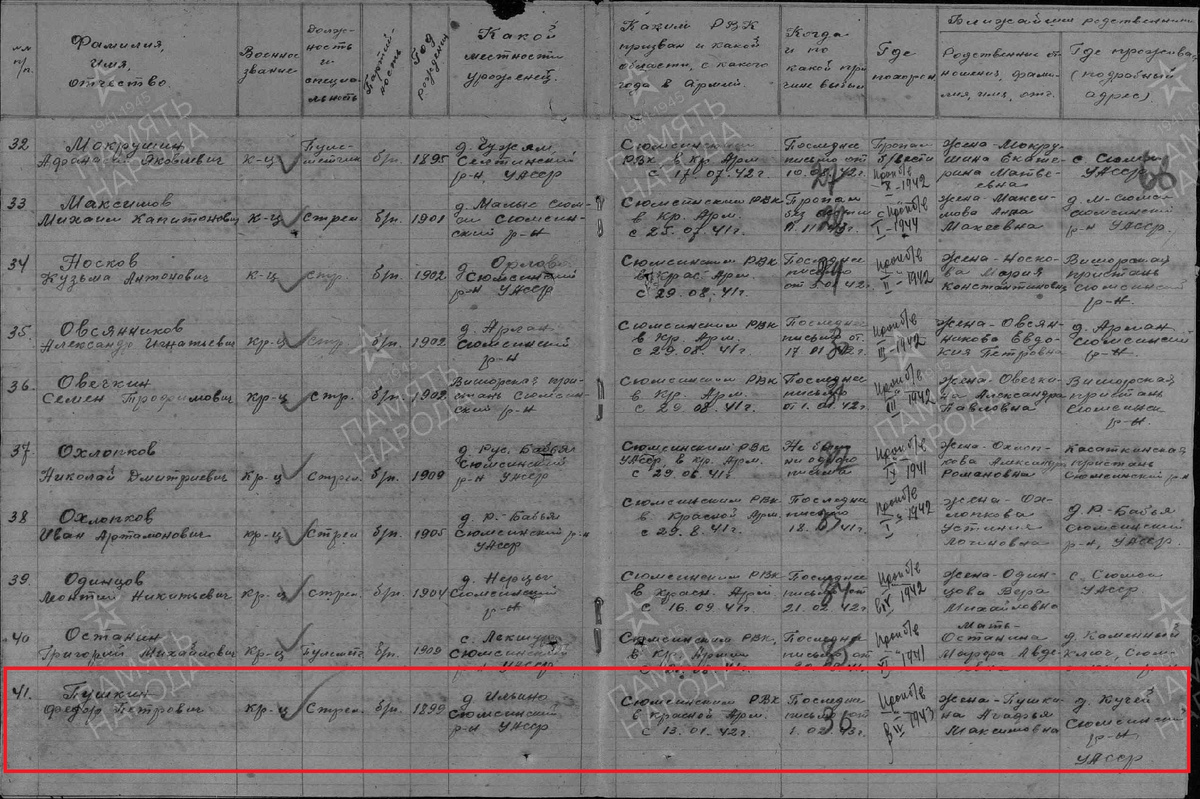 №№ п/п. Фамилия, имя, отчество. Военное звание Долж-ность и специа-льность Партий-ность Год рождения Какой местности уроженец. Каким РВК призван и какой области, с какого года в Армии. Когда и по какой при-чине выбыл Где похорон. Ближайшие родственники
Родственные от-ношения, фами-лия, имя, отч. Где проживает (подробный адрес).
32 Мокрушин
Яковлевич к-ц Пуле-метчик б/п. 1895 д. Гужем, Селтинский р-н, УАССР Сюмсинским РВК, в Кр. Арм. с 17.07.42г. Последнее письмо от Пропал б/вести проп б/в X-1942 Жена-Мокру-шина Екате-рина Матве-евна с Сюмси УАССР
27 66
33 Максимов
Михаил Капитонович к-ц Стрел б/п. 1901 д. Малые Сюм-си Сюмсин-ский р-н Сюмсинским РВК в Кр. Арм. с 25.07.41г. Пропал без вести с проп б/в I-1944 Жена-Макси-мова Анна Макеевна д. М-Сюмси Сюмсинский р-н УАССР.
34 Носков
Кузьма Антонович к-ц стр. б/п. 1902. д. Орлово Сюмсинский р-н УАССР Сюмсинским РВК в Крас. Арм. с 29.08.41г. Последнее письмо проп б/в II-1942 Жена-Носко-ва Мария Константиновн Вишорская пристань Сюмсинский р-н.
35. Овсянников
Александр Игнатьевич кр-ц стр б/п. 1902. д. Арлан Сюмсинский р-н Сюмсинским РВК в Кр. Арм. с 29.08.41г. Последнее письмо от 17.01.42г. проп б/в III-1942 Жена-Овсян-никова Евдо-кия Петровна д. Арлан Сюмсинский р-н.
36. Овечкин
Семен Трофимович кр-ц стр. б/п. 1902 Вишорская при-стань Сюмсин-ский р-н Сюмсинским РВК в Кр. Арм. с 29.08.41г. Последнее письмо проп б/в III-1942 Жена-Овечки-на Александра Павловна Вишорская пристань Сюмсинск р-н.
37 Охлопков
Николай Дмитриевич кр-ц Стрел. б/п. 1909 д. Рус. Бабья Сюмсинский р-н УАССР Сюмсинским РВК УАССР в Кр. Арм. с 29.06.41г. Не было ни одного письма проп б/в 1941 Жена-Охлоп-кова Александра Романовна Касаткинская пристань Сюмсинский р-н
38 Охлопков
Иван Артамонович кр-ц Стрел б/п. 1905 д. Р.-Бабья Сюмсинский р-н УАССР Сюмсинским РВК в Красной Арм. с 29.8.41г. Последнее письмо проп б/в I-1942 Жена-Ох-лопкова Устиния Логиновна д. Р-Бабья Сюмсинский р-н, УАССР.
39. Одинцов
Никитьевич кр-ц Стрел. б/п. 1904 Сюмсинский р-н Сюмсинским РВК в Красн. Арм. с 16.09.41г. Последнее письмо от 21.02.42г проп б/в IV 1942 Жена-Один-цова Вера Михайловна с. Сюмси УАССР
40 Останин
Григорий Михайлович кр-ц Пулеметч б/п. 1909 с. Лекшур Сюмсинский Сюмсинским РВК, в Кр. Армии Последнее письмо от проп б/в 1941 Мать-Останина Марфа Авде- д. Каменный ключ, Сюм-
41. Пушкин
Федор Петрович кр-ц Стрел. б/п. 1899 д. Ильино Сюмсинский р-н УАССР Сюмсинским РВК в Красной Арм. с 13.01.42г. Последнее письмо от 36 проп б/в VII-1943 Жена-Пушки-на Агафья Максимовна д. Кучей Сюмсинский р-н УАССР
1941-1945
ПАМЯТЬ
НАРОДА